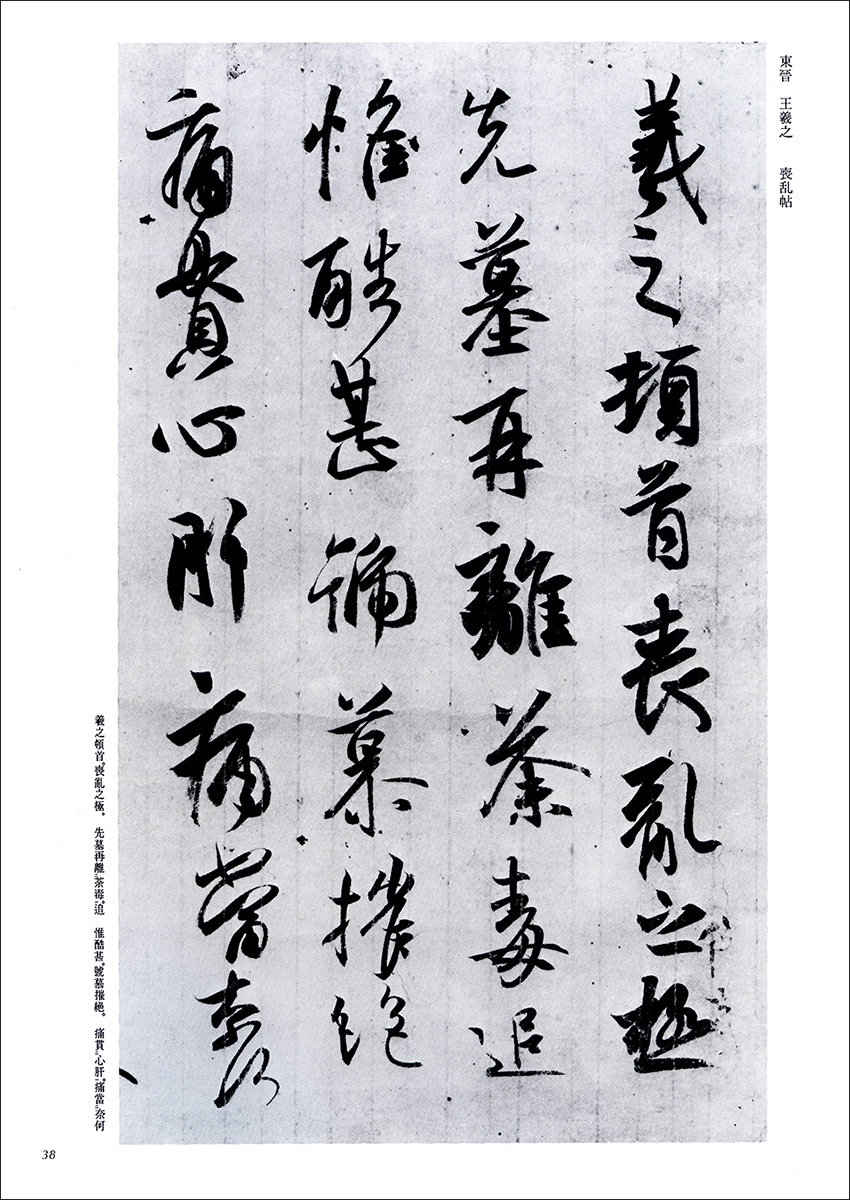 東晉 王羲之 喪乱帖
羲之頓首喪亂之極
先墓再離荼毒追
惟酷甚號慕摧絶
痛貫心肝痛當奈何
羲之頓首。喪亂之極。 先墓再離荼毒。追 惟酷甚。號慕摧絕。 痛貫心肝。痛當奈何
38